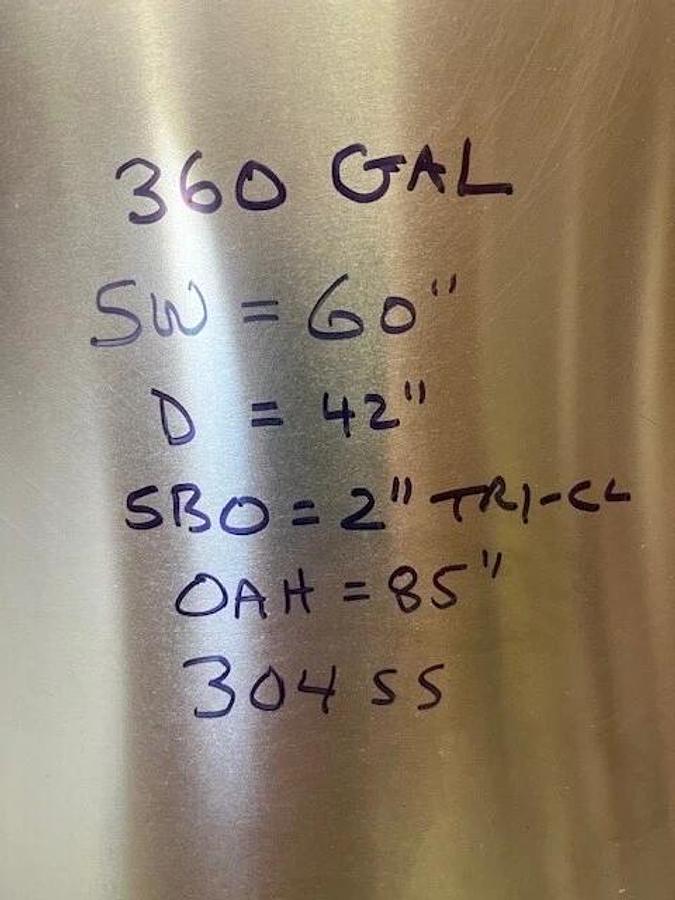 360 GAL
SW = 60"
D = 42"
SBO = 2" TRI-CL
OAH = 85"
304 SS